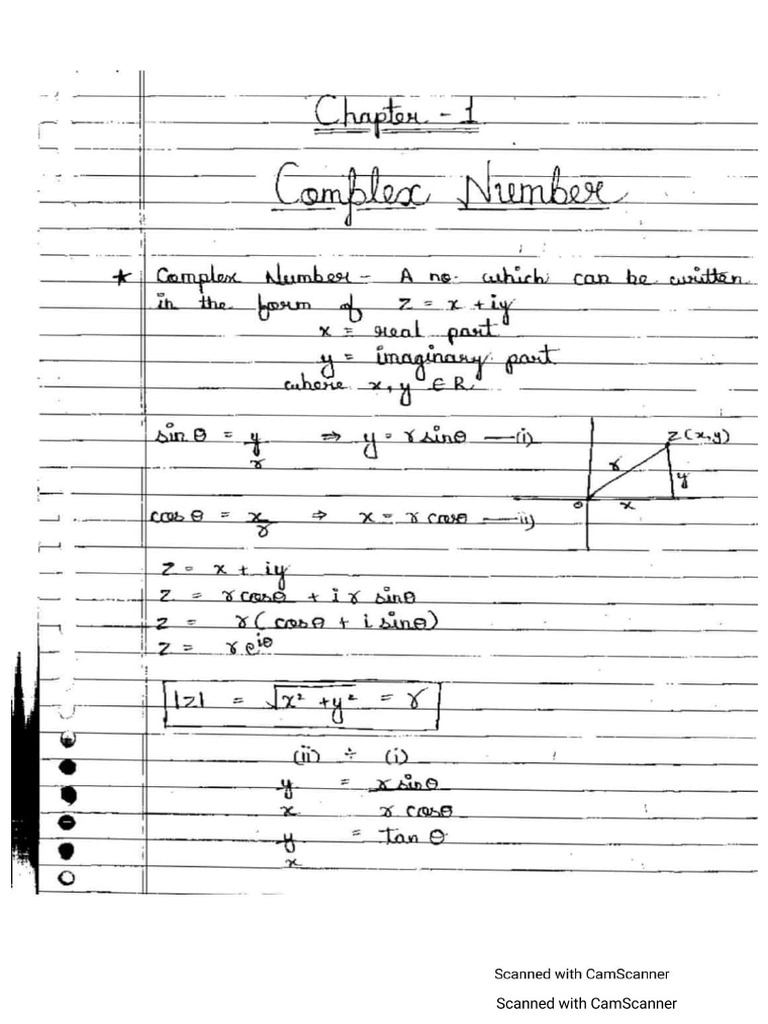 Chapter - 1
Complex Number
★ Complex Number - A no. which can be written
in the form of z = x + iy
x = real part
y = imaginary part
where x, y ∈ R
sin θ = y/r ⇒ y = r sinθ —(i)
z(x,y)
r
y
o
x
cos θ = x/r ⇒ x = r cosθ —ii)
z = x + iy
z = r cosθ + i r sinθ
z = r (cosθ + i sinθ)
z = r e^iθ
|z| = √x² + y² = r
(ii) ÷ (i)
y = r sinθ
x r cosθ
y = tan θ
x
Scanned with CamScanner
Scanned with CamScanner